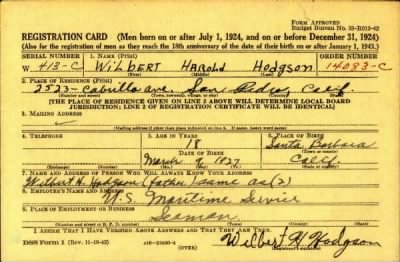 FORM APPROVED
Budget Bureau No. 33-R012-42
REGISTRATION CARD (Men born on or after July 1, 1924, and on or before December 31, 1924)
(Also for the registration of men as they reach the 18th anniversary of the date of their birth on or after January 1, 1943.)
SERIAL NUMBER 1. NAME (Print) ORDER NUMBER
W 413-C WILBERT HAROLD HODGSON 14083-C
(First) (Middle) (Last)
2. PLACE OF RESIDENCE (Print)
2523 Cabrillo ave. San Pedro, Calif.
(Number and street) (Town, township, village, or city) (County) (State)
[THE PLACE OF RESIDENCE GIVEN ON LINE 2 ABOVE WILL DETERMINE LOCAL BOARD
JURISDICTION; LINE 2 OF REGISTRATION CERTIFICATE WILL BE IDENTICAL]
3. MAILING ADDRESS
[Mailing address if other than place indicated on line 2. If same, insert word same]
4. TELEPHONE 5. AGE IN YEARS 6. PLACE OF BIRTH
18 Santa Barbara
DATE OF BIRTH (Town or county)
March 9 1927 Calif.
(Exchange) (Number) (Mo.) (Day) (Yr.) (State or country)
7. NAME AND ADDRESS OF PERSON WHO WILL ALWAYS KNOW YOUR ADDRESS
Wilbert H. Hodgson (father) same as (2)
8. EMPLOYER'S NAME AND ADDRESS
U.S. Maritime Service
9. PLACE OF EMPLOYMENT OR BUSINESS
Seaman
(Number and street or R. F. D. number) (Town) (County) (State)
I AFFIRM THAT I HAVE VERIFIED ABOVE ANSWERS AND THAT THEY ARE TRUE.
DSS Form 1 (Rev. 11-16-42) (OVER) Wilbert H Hodgson